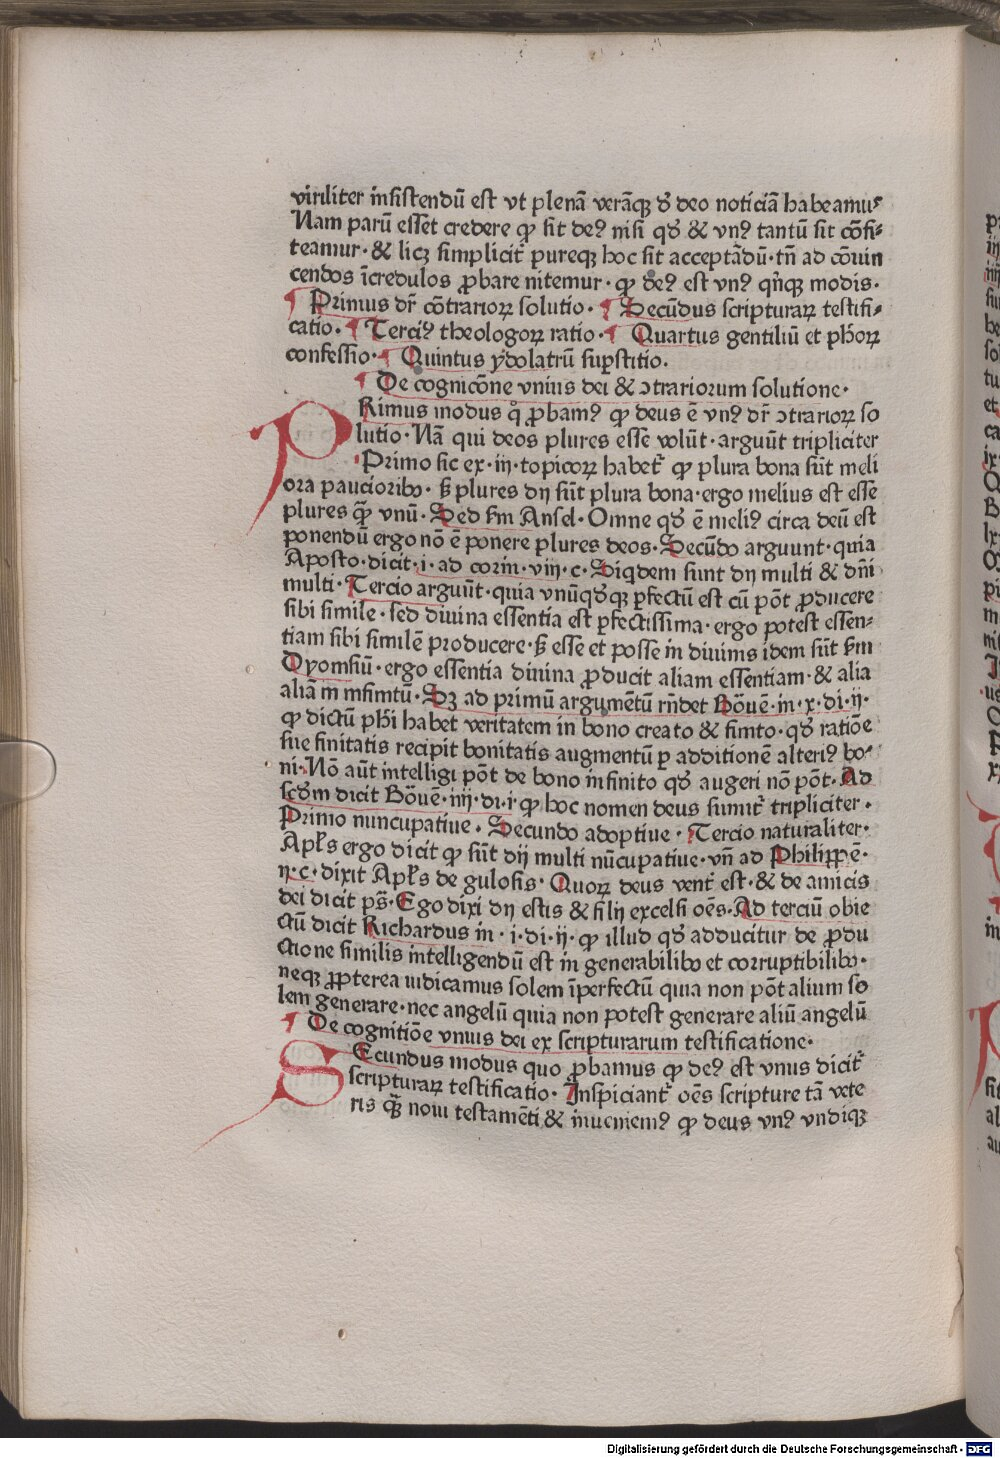 viriliter insistendū est vt plenā verāqꝫ dē deo noticiā habeamuꝰ
Nam parū esset credere ꝙ sit deꝰ nisi qđ & vnꝰ tantū sit cōfi⸗
teamur · & licꝫ simplicit̄ pureqꝫ hoc sit acceptādū · tn̄ ad cōuin
cendos īcredulos ꝓbare nitemur · ꝙ deꝰ est vnꝰ qn̄qꝫ modis ·
¶ Primus dr̄ cōtrarioꝝ solutio · ¶ Secūdus scripturaꝝ testifi⸗
catio · ¶ Terciꝰ theologoꝝ ratio · ¶ Quartus gentiliū et ph̄oꝝ
confessio · ¶ Quintus ydolatrū suꝑstitio .
¶ De cognicōne vnius dei & ↄtrariorum solutione ·
PRimus modus q̊ ꝓbamꝰ ꝙ deus ē vnꝰ dr̄ ↄtrarioꝝ so
lutio · Nā qui deos plures esse volūt · arguūt tripliciter
Primo sic ex · iij · topicoꝝ habet̄ ꝙ plura bona sūt meli
ora paucioribꝰ · ß plures dij sūt plura bona · ergo melius est esse
plures qꝫ̄ vnū · Sed scđm Ansel · Omne qđ ē meliꝰ circa deū est
ponendū ergo nō ē ponere plures deos · Secūdo arguunt · quia
Aposto · dicit · i · ad corin · viij · c · Siqdem sunt dij multi & dn̄i
multi · Tercio arguūt · quia vnūqđqꝫ ꝑfectū est cū pōt ꝓducere
sibi simile · sed diuina essentia est ꝑfectissima · ergo potest essen⸗
tiam sibi similē producere · ß esse et posse in diuinis idem sūt scđm
Dyonisiū · ergo essentia diuina ꝓducit aliam essentiam · & alia
aliā in infinitū · Sꝫ ad primū argumētū rn̄det Bōuē · in · x · di · ij ·
ꝙ dictū ph̄i habet veritatem in bono creato & finito · qđ ratiōe
sue finitatis recipit bonitatis augmentū ꝑ additionē alteriꝰ bo⸗
ni · Nō aūt intelligi pōt de bono infinito qđ augeri nō pōt · Ad
scđm dicit Bōuē · iiij · di · i · ꝙ hoc nomen deus sumit̄ tripliciter ·
Primo nuncupatiue · Secundo adoptiue · Tercio naturaliter ·
Apl̄s ergo dicit ꝙ sūt dij multi nūcupatiue · vn̄ ad Philippē ·
ij · c · dixit Apl̄s de gulosis · Quoꝝ deus vent̄ est · & de amicis
dei dicit ps̄ · Ego dixi dij estis & filij excelsi oēs · Ad terciū obie
ctū dicit Richardus in · i · di · ij · ꝙ illud qđ adducitur de ꝓdu
ctione similis intelligendū est in generabilibꝰ et corruptibilibꝰ ·
neqꝫ ꝓpterea iudicamus solem īperfectū quia non pōt alium so
lem generare · nec angelū quia non potest generare aliū angelū
¶ De cognitiōe vnius dei ex scripturarum testificatione ·
SEcundus modus quo ꝓbamus ꝙ deꝰ est vnus dicit̄
scripturaꝝ testificatio · Inspiciant̄ oēs scripture tā vete
ris qꝫ̄ noui testamēti & inueniemꝰ ꝙ deus vnꝰ vndiqꝫ
Digitalisierung gefördert durch die Deutsche Forschungsgemeinschaft · DFG